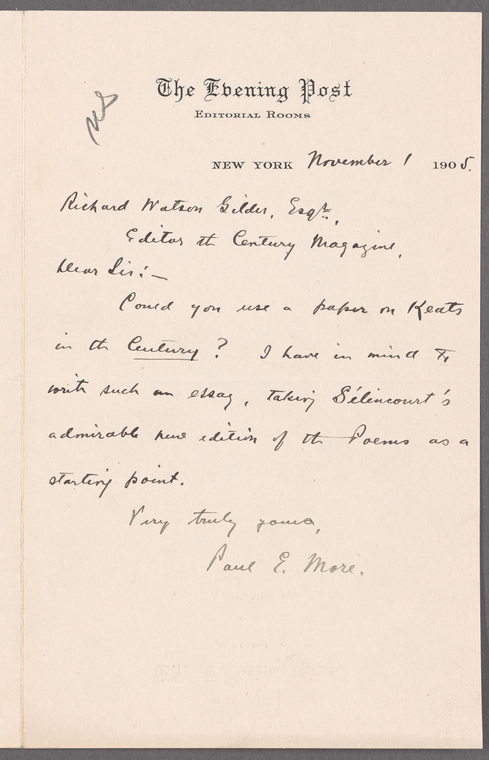 The Evening Post
Editorial Rooms
New York November 1 1905.
Richard Watson Gilder, Esqre.,
Editor th Century Magazine,
Dear Sir:—
Could you use a paper on Keats
in th Century? I have in mind to
write such an essay, taking Sélincourt's
admirable new edition of th Poems as a
starting point.
Very truly yours,
Paul E. More.